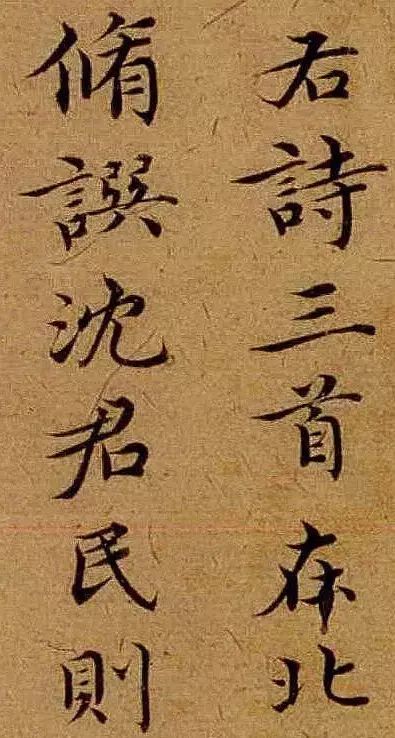 右詩三首在北
脩譔沈君民則